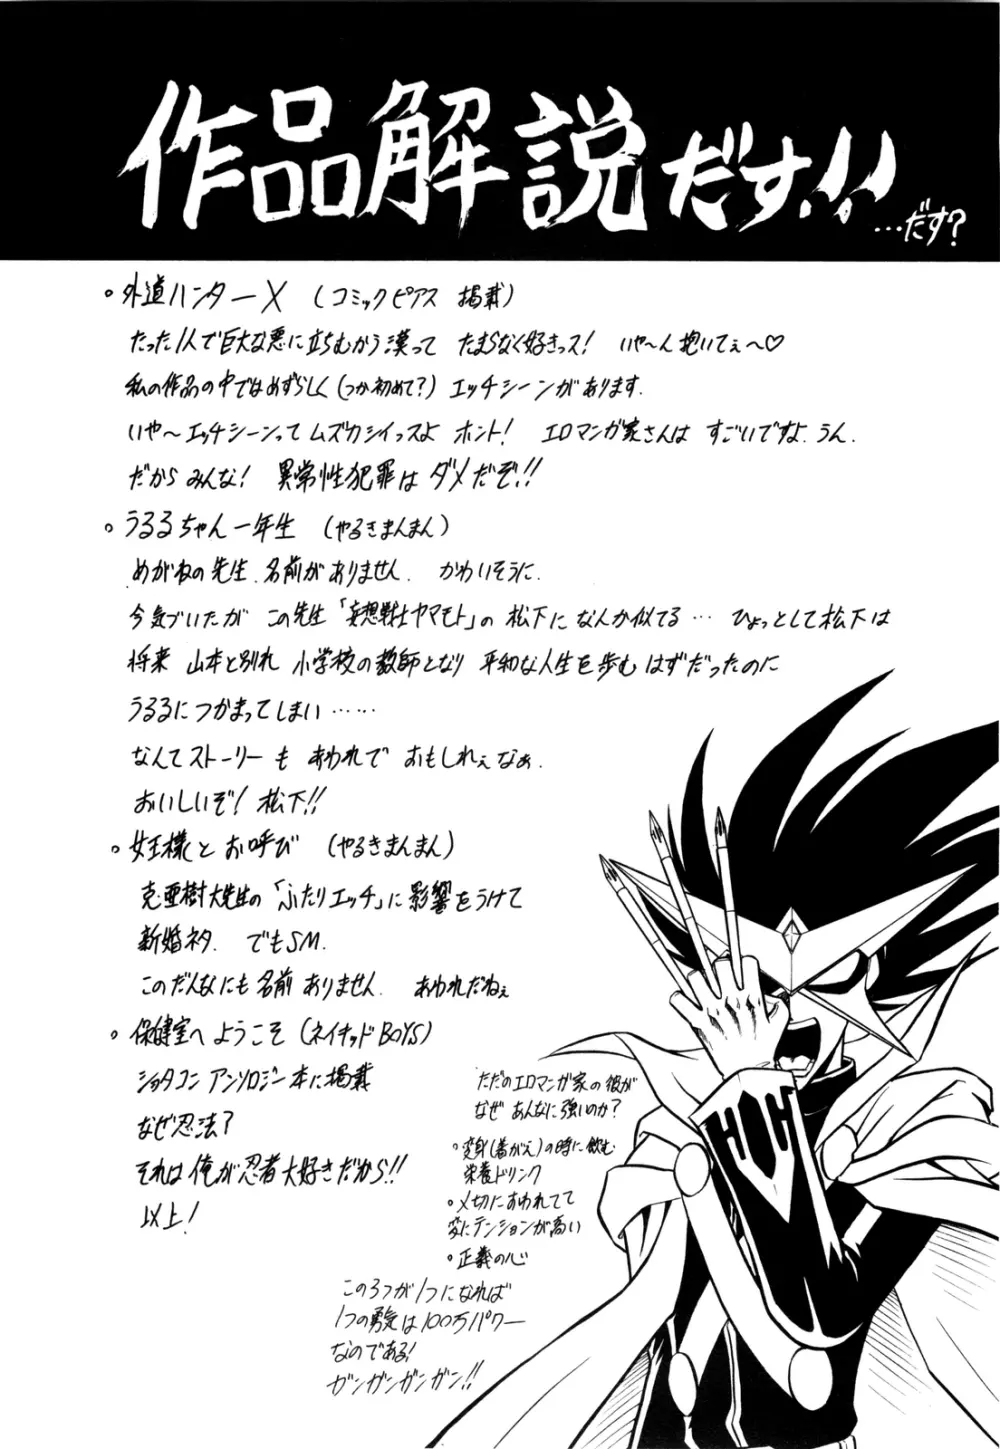 作品解説だす!!
…だす?
。外道ハンターX (コミックピアス 掲載)
たった1人で巨大な悪に立ちむかう漢って たまらなく好きっス! いや〜ん抱いてぇ〜♡
私の作品の中ではめずらしく(つか初めて?) エッチシーンがあります.
いや〜エッチシーンって ムズカシイっスよ ホント! エロマンガ家さんは すごいですよ.うん.
だから みんな! 異常性犯罪は ダメだぞ!!
。うるるちゃん一年生 (やるきまんまん)
めがねの先生.名前がありません. かわいそうに.
今気づいたが この先生「妄想戦士ヤマモト」の 松下に なんか似てる… ひょっとして松下は
将来 山本と別れ 小学校の教師となり 平和な人生を歩む はずだったのに
うるるにつかまってしまい……
なんてストーリーも あわれで おもしれぇなぁ.
おいしいぞ! 松下!!
。女王様とお呼び (やるきまんまん)
克亜樹大先生の「ふたりエッチ」に影響をうけて
新婚ネタ. でもSM.
このだんなにも 名前 ありません. あわれだねぇ
。保健室へようこそ (ネイキッドBOYS)
ショタコン アンソロジー本に掲載
なぜ忍法?
それは俺が忍者大好きだから!!
以上!
ただのエロマンガ家の彼が
なぜ あんなに強いのか?
。変身(着がえ)の時に飲む
栄養ドリンク
。〆切におわれてて
変にテンションが高い
。正義の心
この3つが1つになれば
1つの勇気は100万パワー
なのである!
ガンガンガンガン!!